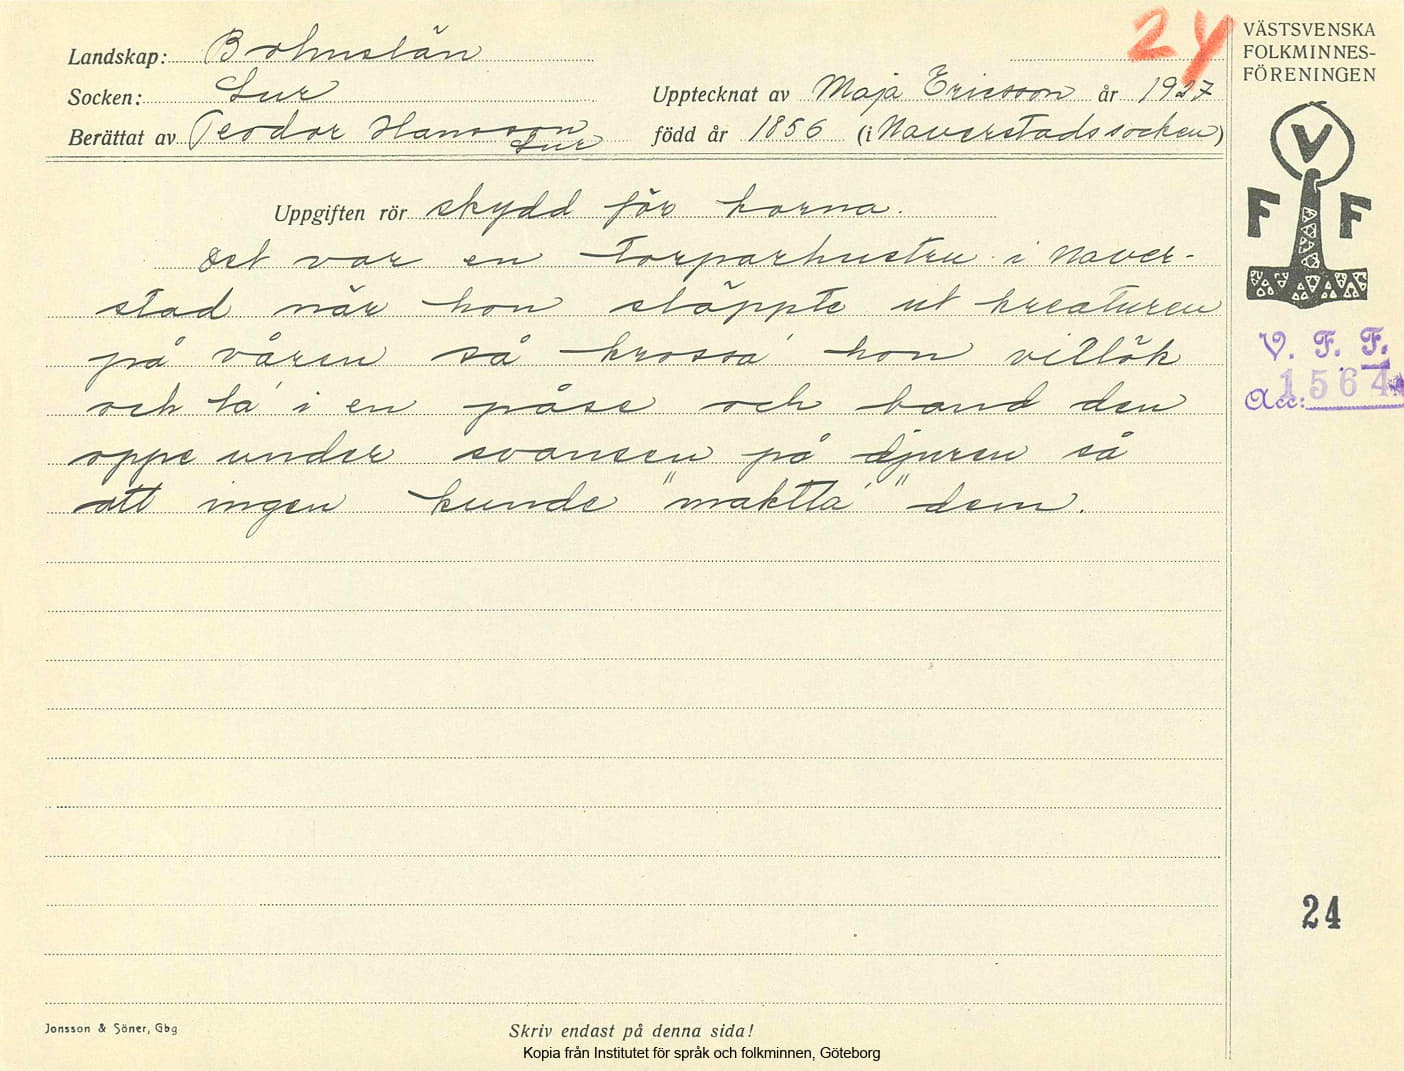 24
VÄSTSVENSKA
FOLKMINNES-
FÖRENINGEN
Landskap: Bohuslän
Socken: Lur
Upptecknat av Maja Ericsson år 1927
Berättat av Teodor Hansson
Lur
född år 1856 (i Naverstads socken)
V
F F
Uppgiften rör skydd för korna.
Det var en torparhustru i Naver-
stad när hon släppte ut kreaturen
på våren så krossa' hon vitlök
och la' i en påse och band den
oppe under svansen på djuren så
att ingen kunde "maktta'" dem.
V. F. F.
Acc: 1564
24
Jonsson & Söner, Gbg
Skriv endast på denna sida!
Kopia från Institutet för språk och folkminnen, Göteborg